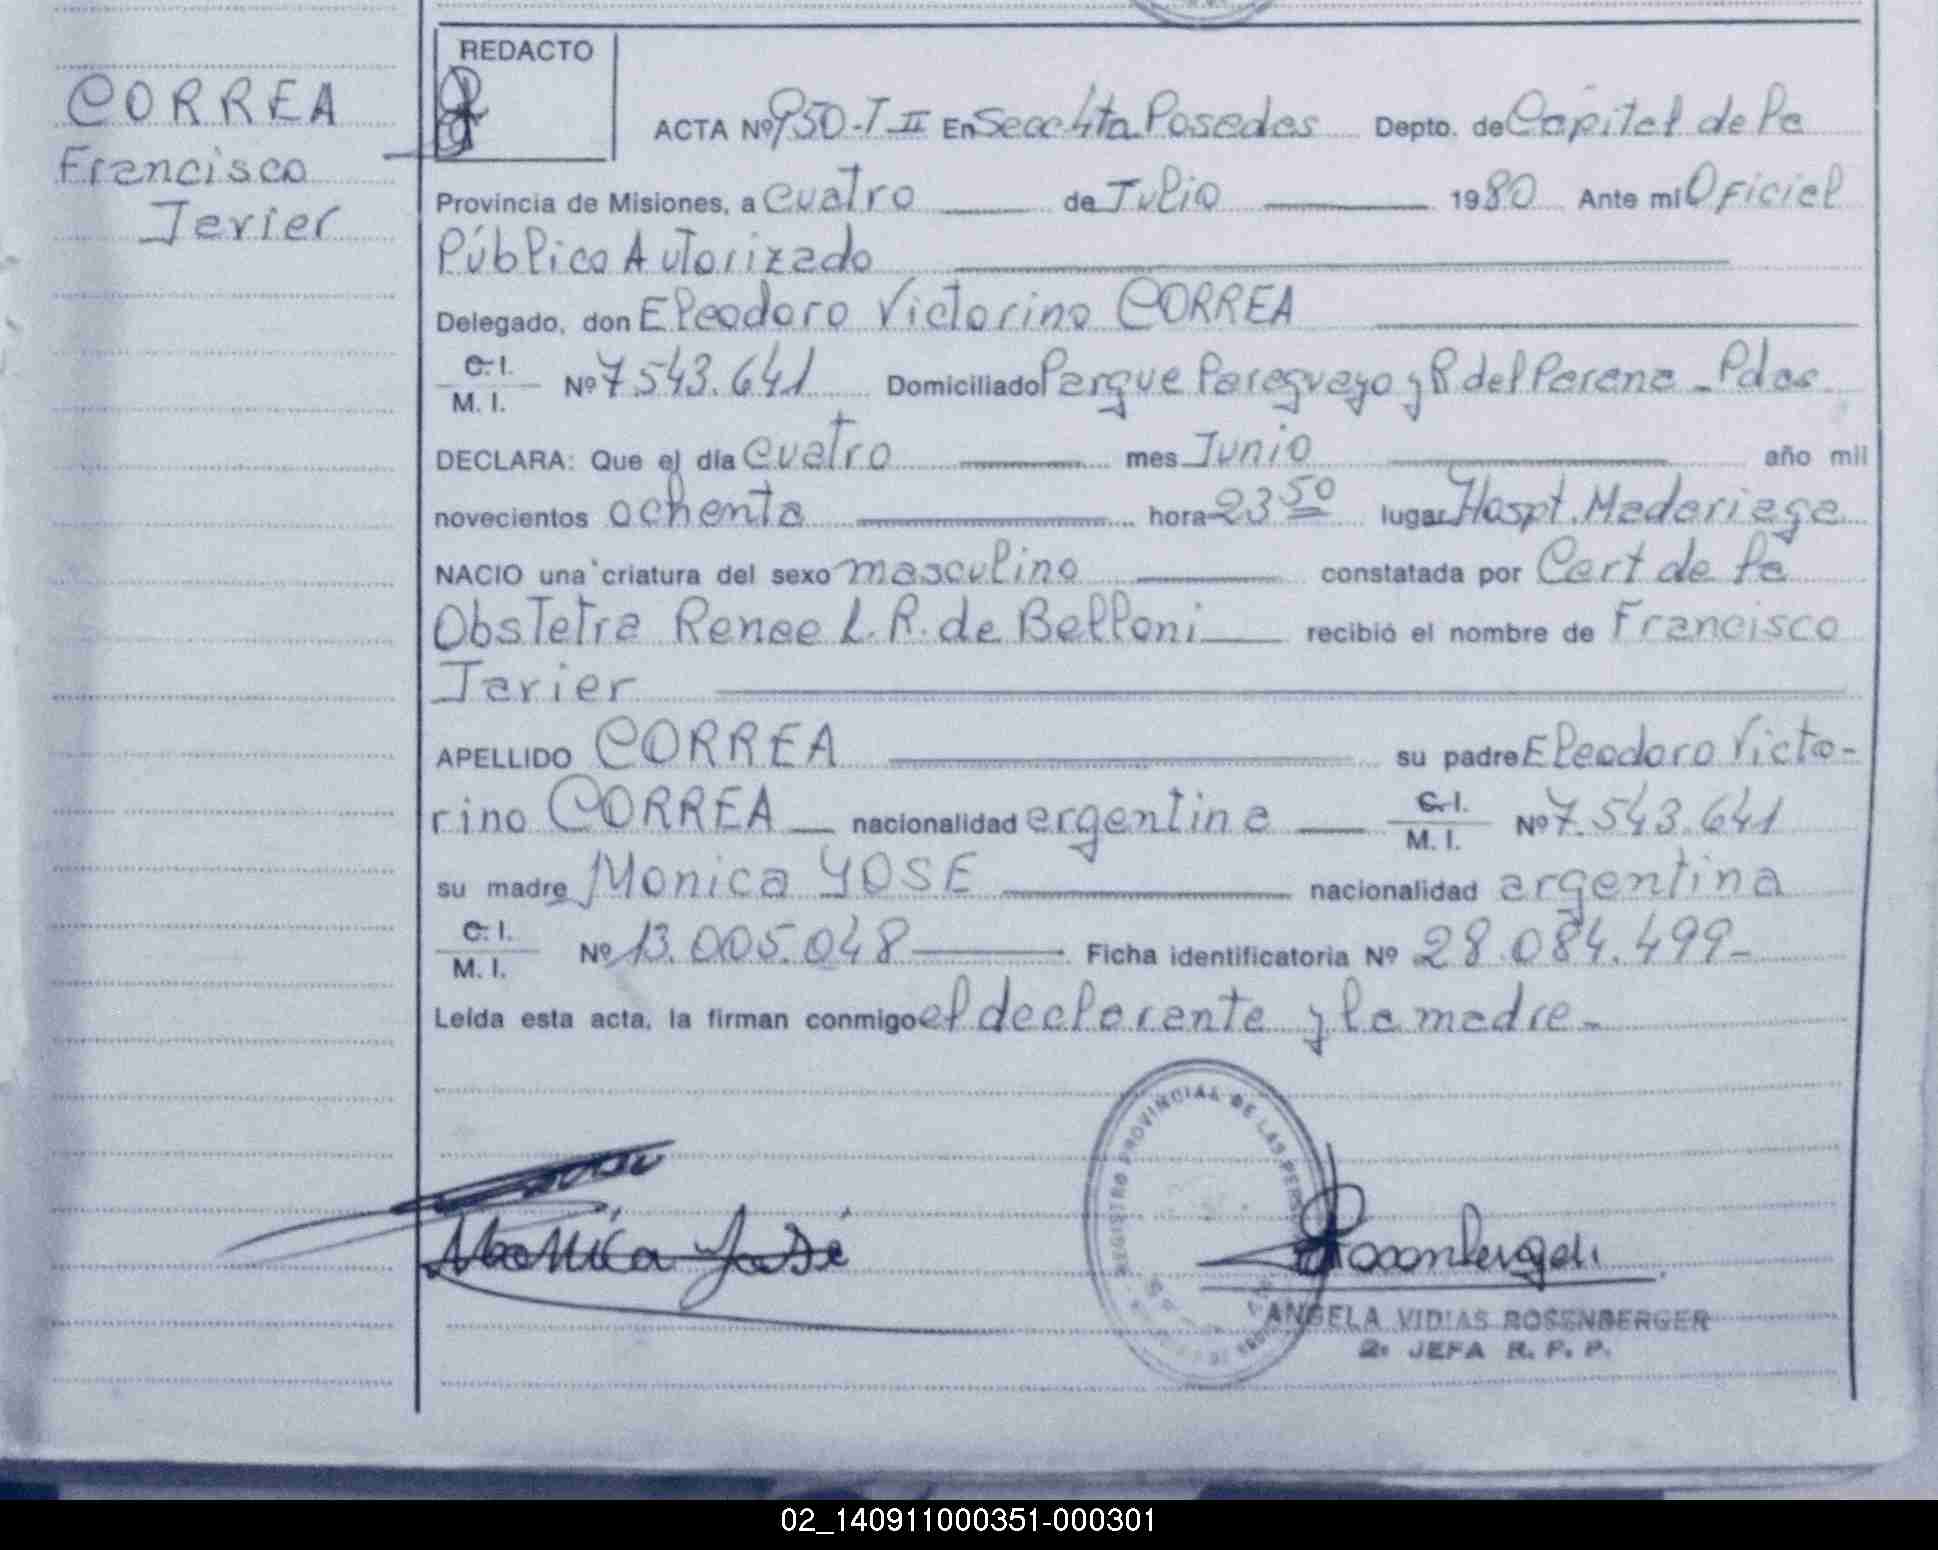 CORREA
Francisco
Javier
REDACTO
ACTA Nº 950-T II En Secc 4ta Posadas Depto. de Capital de la
Provincia de Misiones, a cuatro de Julio 1980 Ante mi Oficial
Público Autorizado
Delegado, don Eleodoro Victorino CORREA
C. I.
M. I. Nº 7.543.641 Domiciliado Parque Paraguayo y R. del Parana - Pdas
DECLARA: Que el día cuatro mes Junio año mil
novecientos ochenta hora 23 50 lugar Hospt. Madariaga
NACIO una criatura del sexo masculino constatada por Cert de la
Obstetra Renee L. R. de Belloni recibió el nombre de Francisco
Javier
APELLIDO CORREA su padre Eleodoro Victo-
rino CORREA nacionalidad argentina C. I. M. I. Nº 7.543.641
su madre Monica YOSE nacionalidad argentina
C. I.
M. I. Nº 13.005.048 Ficha identificatoria Nº 28.084.499-
Leída esta acta, la firman conmigo el declarante y la madre-
REGISTRO PROVINCIAL DE LAS PERS
Monica José
Rosenberger
ANGELA VIDIAS ROSENBERGER
2º JEFA R. P. P.
02_140911000351-000301